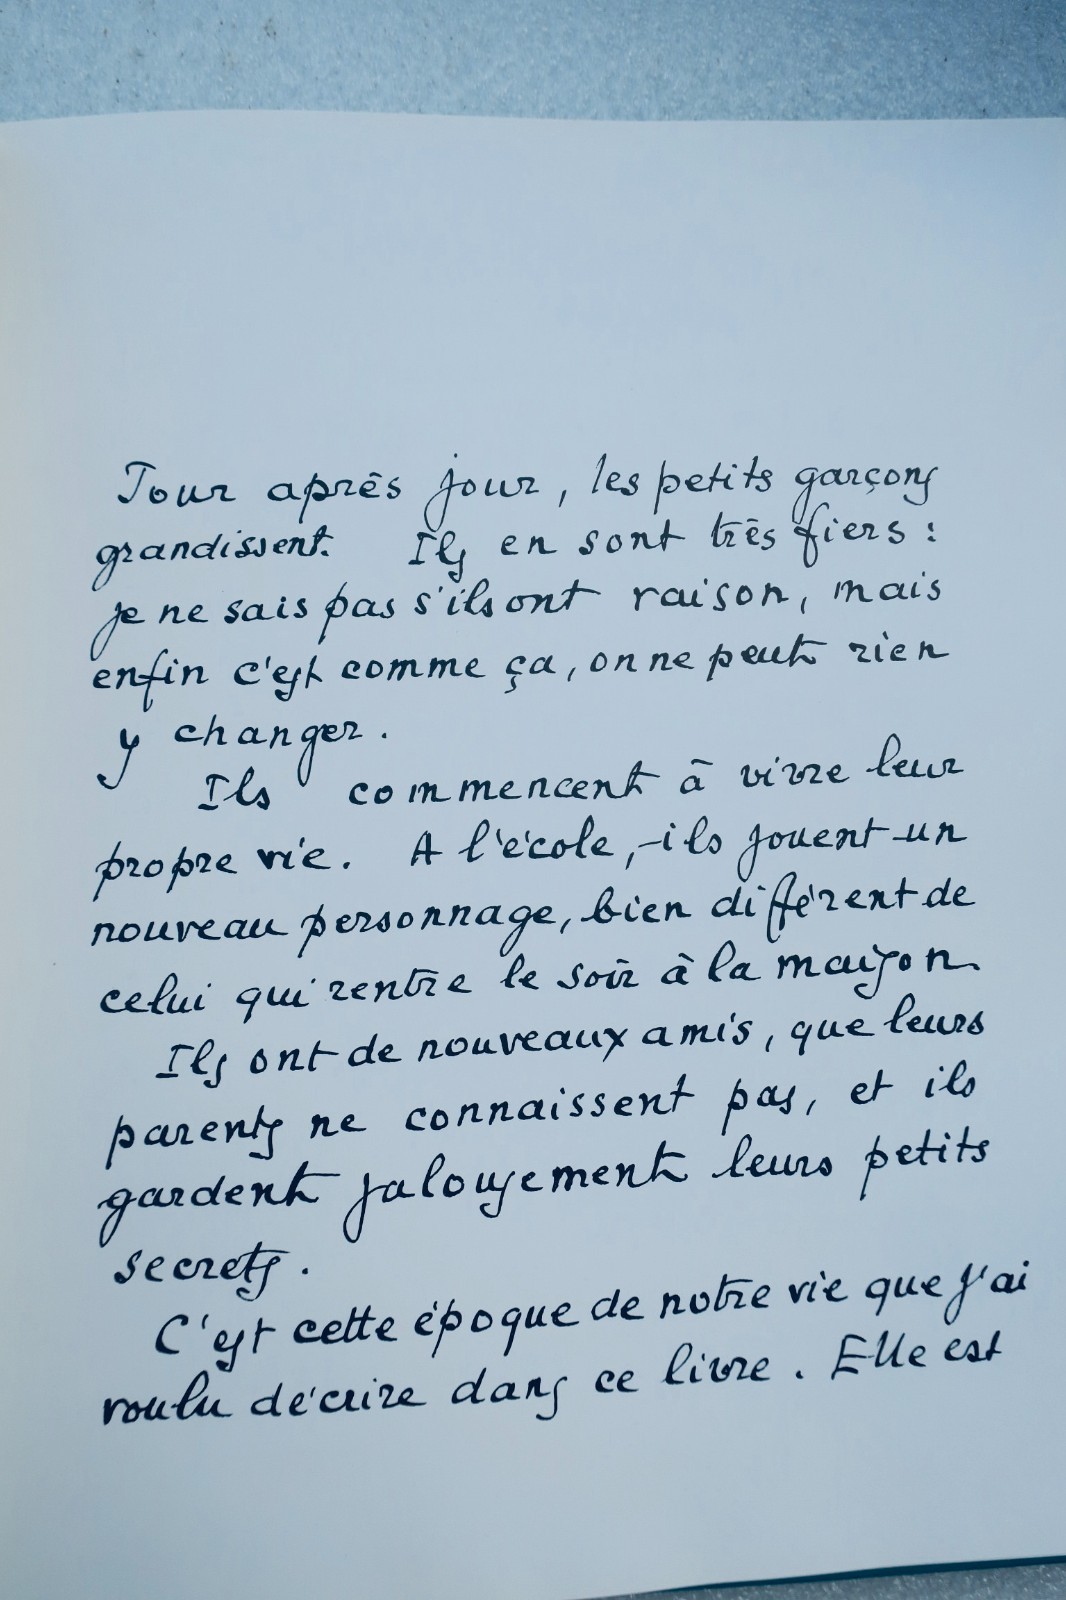 Jour après jour, les petits garçons
grandissent. Ils en sont très fiers :
je ne sais pas s'ils ont raison, mais
enfin c'est comme ça, on ne peut rien
y changer.
Ils commencent à vivre leur
propre vie. A l'école, ils jouent un
nouveau personnage, bien différent de
celui qui rentre le soir à la maison.
Ils ont de nouveaux amis, que leurs
parents ne connaissent pas, et ils
gardent jalousement leurs petits
secrets.
C'est cette époque de notre vie que j'ai
voulu décrire dans ce livre. Elle est